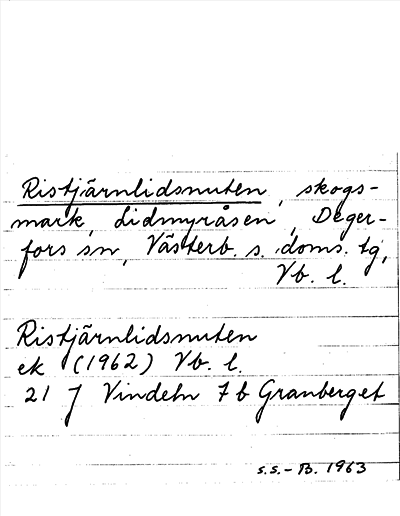 Ristjärnlidsnuten, skogs-
mark, Lidmyråsen, Deger-
fors sn, Västerb. s. doms. tg,
Vb. l.
Ristjärnlidsnuten
ek (1962) Vb. l.
21 J Vindeln 7 b Granberget
s.s.-B. 1963